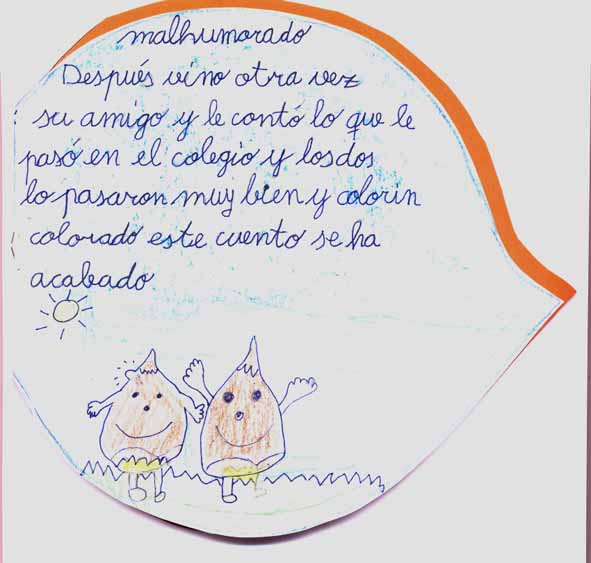 malhumorado
Después vino otra vez
su amigo y le contó lo que le
pasó en el colegio y losdos
lo pasaron muy bien y colorin
colorado este cuento se ha
acabado